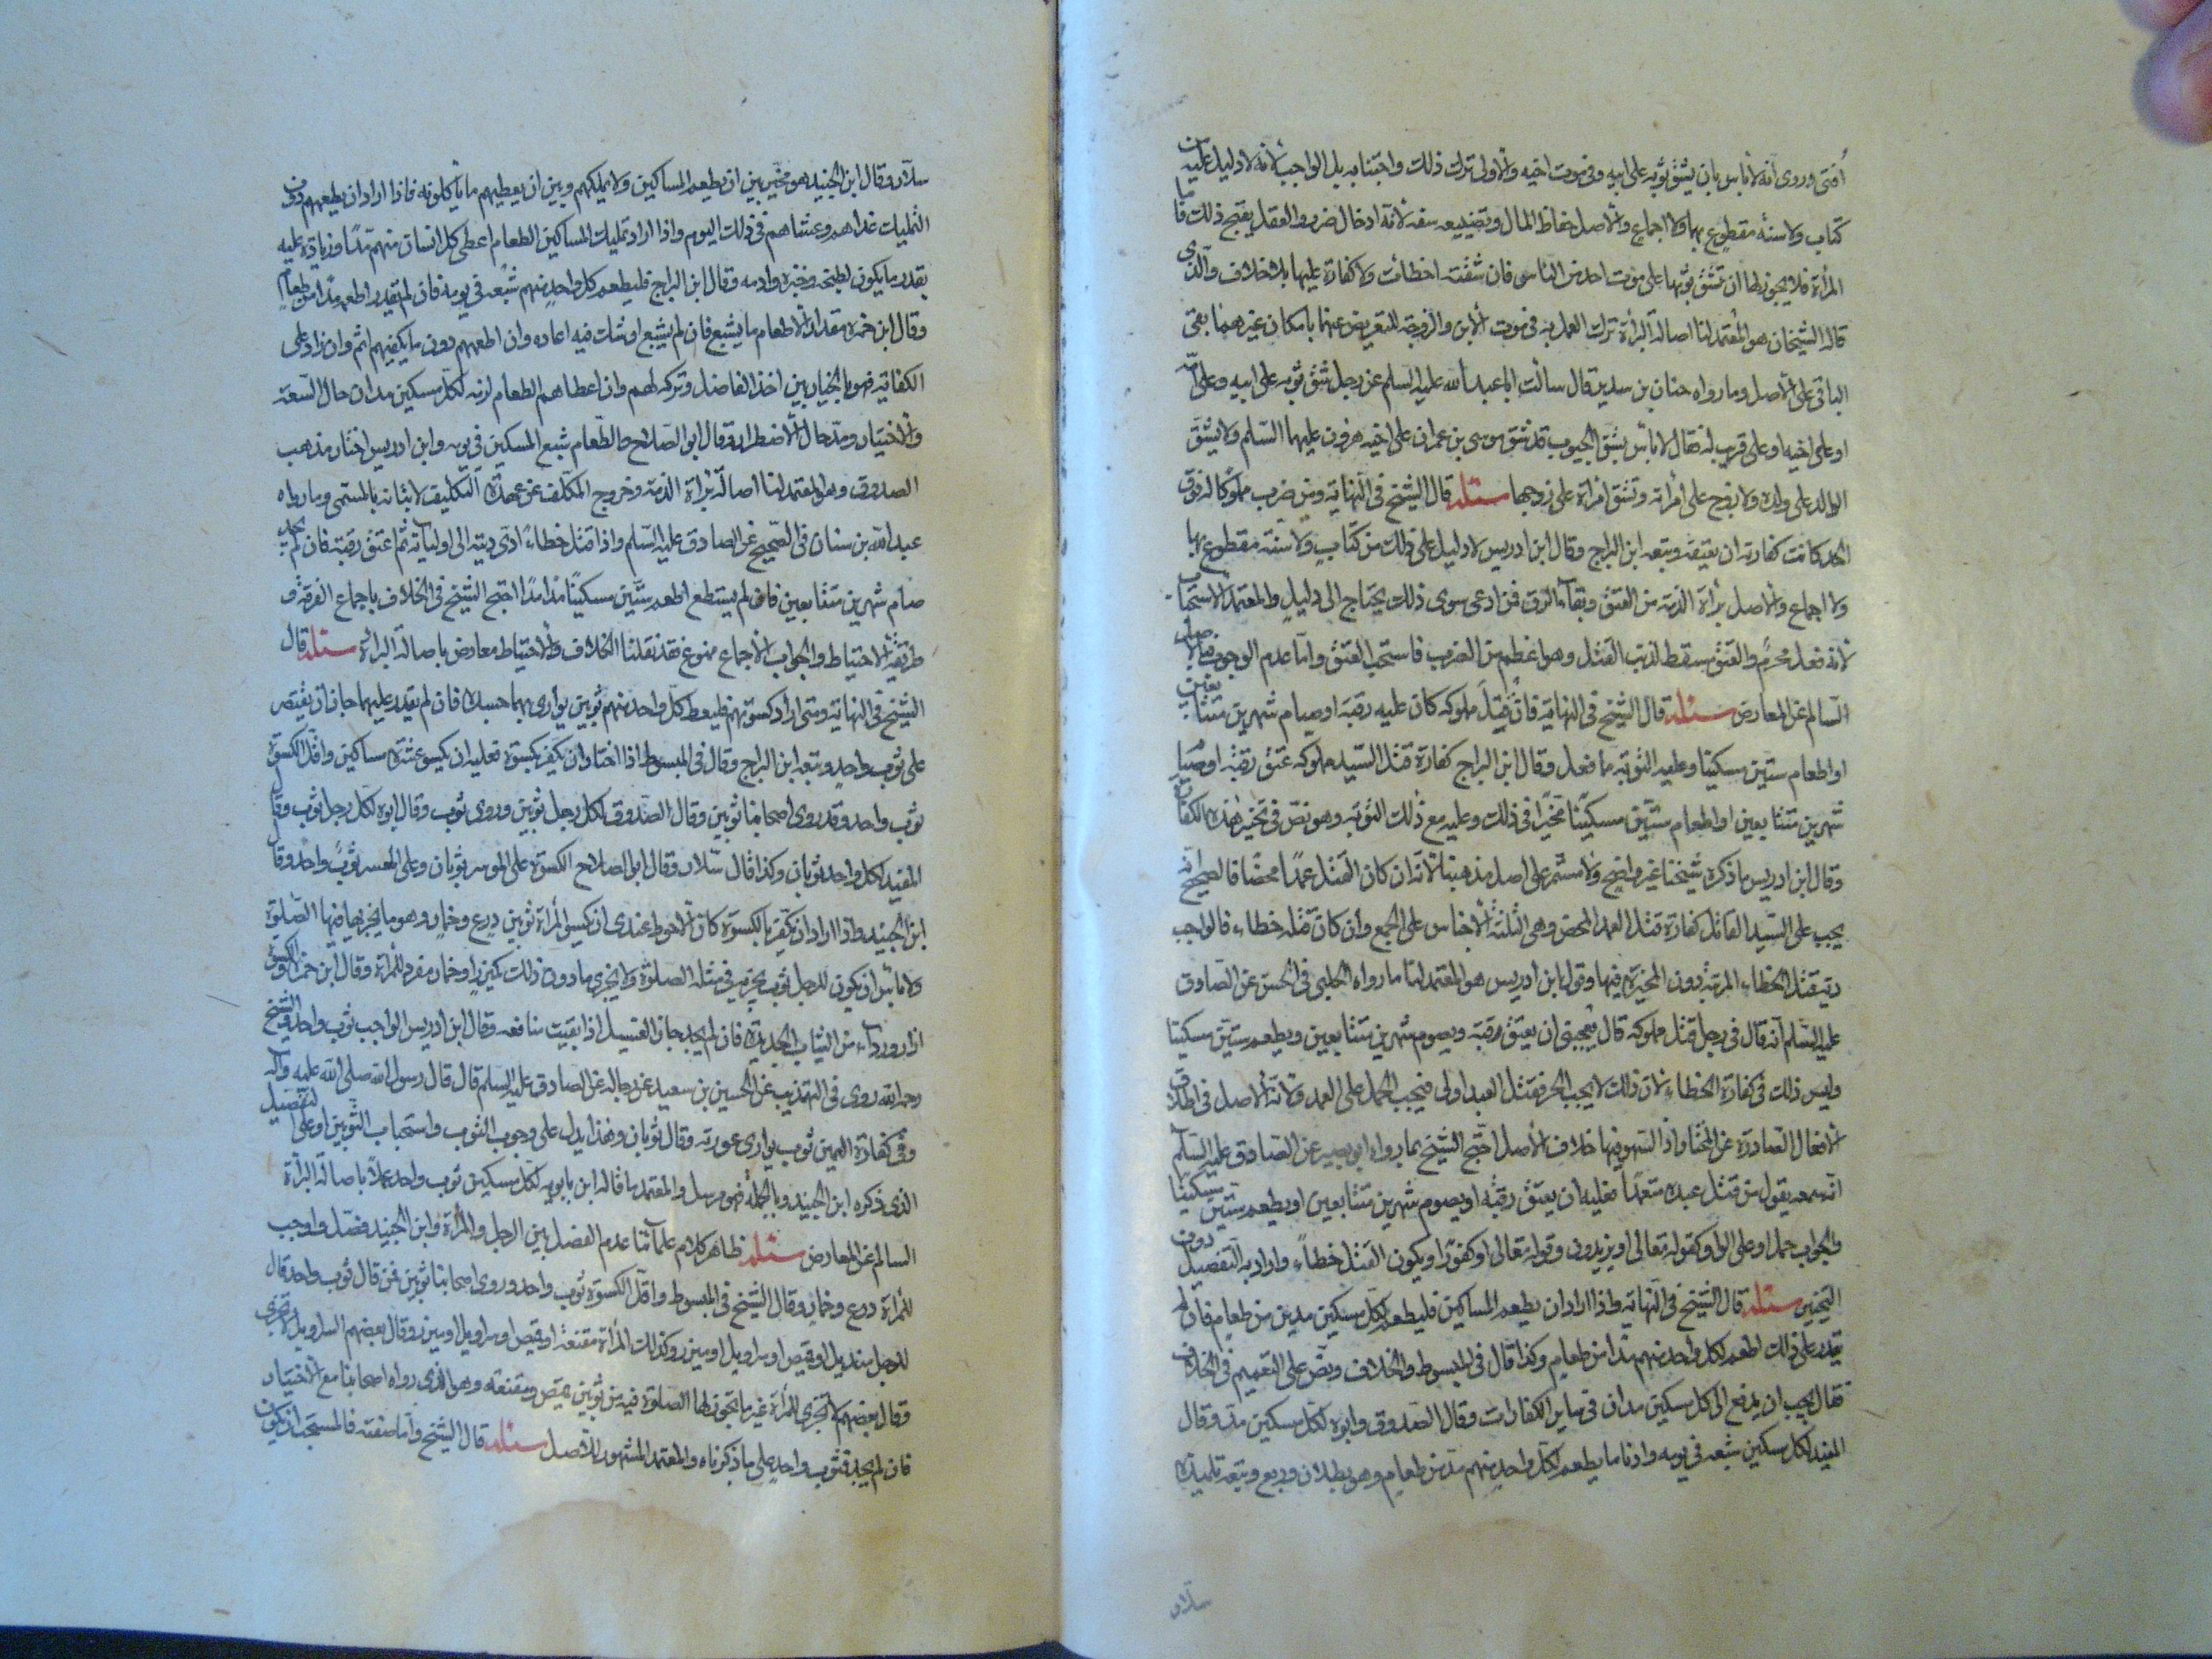 أفتى وروى أنه لا بأس بان يشق ثوبه على ابيه وفي موت اخيه والاولى ترك ذلك واجتنابه بل الواجب لأنه لا دليل عليه من
كتاب ولا سنة مقطوع بها ولا اجماع والأصل حفاظ المال وتضييعه سفه لأنه ادخال ضرر والعقل يقبح ذلك فاما
المرأة فلا يجوز لها ان تشق ثوبها على موت احد من الناس فان شقته اخطأت ولا كفارة عليها بلا خلاف والذي
قاله الشيخان هو المعتمد لنا اصالة البراءة ترك العمل به في موت الابن والزوجة للتعويض عنها بامكان غيرهما بقى
الباقي على الأصل وما رواه حنان بن سدير قال سألت ابا عبد الله عليه السلم عن رجل شق ثوبه على ابيه وعلى امه
او على اخيه او على قريب له فقال لا بأس بشق الجيوب قد شق موسى بن عمران على اخيه هرون عليهما السلم ولا يشق
الوالد على ولده ولا زوج على امرأته وتشق امرأة على زوجها مسئله قال الشيخ في النهاية ومن ضرب مملوكا له فوق
الحد كانت كفارته ان يعتقه وتبعه ابن البراج وقال ابن ادريس لا دليل على ذلك من كتاب ولا سنة مقطوع بها
ولا اجماع والأصل براءة الذمة من العتق وبقاء الرق فمن ادعى سوى ذلك يحتاج الى دليل والمعتمد الاستحباب
لأنه فعل محرم والعتق مسقط لذنب القتل وهو اعظم من الضرب فاستحب العتق وأما عدم الوجوب فبالأصل
السالم عن المعارض مسئله قال الشيخ في النهاية فان قتل مملوكه كان عليه رقبة او صيام شهرين متتابعين
او اطعام ستين مسكينا وعليه التوبة مما فعل وقال ابن البراج كفارة قتل السيد مملوكه عتق رقبة او صيام
شهرين متتابعين او اطعام ستين مسكينا مخيرا في ذلك وعليه مع ذلك التوبة وهو نص في تخيير هذه الكفارة
وقال ابن ادريس ما ذكره شيخنا غير واضح ولا مستمر على اصل مذهبنا لأنه ان كان القتل عمدا محضا فالصحيح انه
يجب على السيد القاتل كفارة قتل العمد المحض وهي الثلثة الأجناس على الجمع وان كان قتله خطاء فالواجب
دية قتل الخطاء المرتبة دون المخيرة فيها وقول ابن ادريس هو المعتمد لنا ما رواه الحلبي في الحسن عن الصادق
عليه السلم انه قال في رجل قتل مملوكه قال يعجبني ان يعتق رقبة ويصوم شهرين متتابعين ويطعم ستين مسكينا
وليس ذلك في كفارة الخطاء لان ذلك لا يجب الحر فقتل العبد اولى فيجب الحمل على العمد ولأنه الاصل في اطلاق
الافعال الصادرة عن المختار اذ السهو فيها خلاف الأصل احتج الشيخ بما رواه ابو بصير عن الصادق عليه السلم
انه سمعه يقول من قتل عبده متعمدا فعليه ان يعتق رقبة او يصوم شهرين متتابعين او يطعم ستين مسكينا
والجواب حمل او على الواو كقوله تعالى او يزيدون وقوله تعالى او كفورا او يكون القتل خطاء وارادبه التفصيل دون
التخيير مسئله قال الشيخ في النهاية واذا اراد ان يطعم المساكين فليطعم لكل مسكين مدين من طعام فان لم
يقدر على ذلك اطعم لكل واحد منهم مدا من طعام وكذا قال في المبسوط والخلاف ونص على التعميم في الخلاف
فقال يجب ان يدفع الى كل مسكين مدان في ساير الكفارات وقال الصدوق وابوه لكل مسكين مد وقال
المفيد لكل مسكين شبعه في يومه وادنا ما يطعم لكل واحد منهم مد من طعام وهو رطلان وربع وتبعه تلميذه
سلار
سلار وقال ابن الجنيد هو مخير بين ان يطعم المساكين ولا يملكهم وبين ان يعطيهم ما يأكلونه فاذا اراد ان يطعمهم دون
التمليك غداهم وعشاهم في ذلك اليوم واذا اراد تمليك المساكين الطعام اعطى كل انسان منهم مدا وزيادة عليه
بقدر ما يكون لطبخه وخبزه وادمه وقال ابن البراج فليطعم كل واحد منهم شبعه في يومه فان لم يقدر اطعمه مدا من طعام
وقال ابن حمزه مقدار الاطعام ما يشبع فان لم يشبع او شك فيه اعاده وان اطعمهم دون ما يكفيهم اثم وان زاد على
الكفاية فهو بالخيار بين اخذ الفاضل وتركه لهم وان اعطاهم الطعام لزمه لكل مسكين مدان حال السعة
والاختيار ومد حال الاضطرار وقال ابو الصلاح والطعام شبع المسكين في يومه وابن ادريس اختار مذهب
الصدوق وهو المعتمد لنا اصالة براءة الذمة وخروج المكلف عن عهدة التكليف لاتيانه بالمسمى وما رواه
عبد الله بن سنان في الصحيح عن الصادق عليه السلم واذا قتل خطاء ادى ديته الى اوليائه ثم اعتق رقبة فان لم يجد
صام شهرين متتابعين فان لم يستطع اطعم ستين مسكينا مدا مدا احتج الشيخ في الخلاف باجماع الفرقة و
طريقة الاحتياط والجواب الاجماع ممنوع فقد نقلنا الخلاف والاحتياط معارض باصالة البراءة مسئله قال
الشيخ في النهاية ومتى اراد كسوتهم فليعط كل واحد منهم ثوبين يوارى بهما جسده فان لم يقدر عليهما جاز ان يقتصر
على ثوب واحد وتبعه ابن البراج وقال في المبسوط اذا اختار ان يكفر بكسوة فعليه ان يكسو عشرة مساكين واقل الكسوة
ثوب واحد وقد روى اصحابنا ثوبين وقال الصدوق لكل رجل ثوبين وروى ثوب وقال ابوه لكل رجل ثوب وقال
المفيد لكل واحد ثوبان وكذا قال سلار وقال ابو الصلاح الكسوة على الموسر ثوبان وعلى المعسر ثوب واحد وقال
ابن الجنيد واذا اراد ان يكفر بالكسوة كان الاحوط عندي ان يكسو المرأة ثوبين درع وخمار وهو ما يجزيها فيها الصلوة
ولا بأس ان يكون للرجل ثوب يجزيه في مثله الصلوة ولا يجزى ما دون ذلك كميزر او خمار مفرد للمرأة وقال ابن حمزه والكسوة
ازار ورداء من الثياب الجديدة فان لم يجد جاز الغسيل اذا بقيت منافعه وقال ابن ادريس الواجب ثوب واحد والشيخ
رحمه الله روى في التهذيب عن الحسين بن سعيد عن رجاله عن الصادق عليه السلم قال قال رسول الله صلى الله عليه وآله
وفي كفارة اليمين ثوب يوارى عورته وقال ثوبان وهذا يدل على وجوب الثوب واستحباب الثوبين او على التفصيل
الذي ذكره ابن الجنيد وبالجملة فهو مرسل والمعتمد ما قاله ابن بابويه لكل مسكين ثوب واحد عملا باصالة البراءة
السالم عن المعارض مسئله ظاهر كلام علمائنا عدم الفصل بين الرجل والمرأة وابن الجنيد فصل واوجب
للمرأة درع وخمار وقال الشيخ في المبسوط واقل الكسوة ثوب واحد وروى اصحابنا ثوبين فمن قال ثوب واحد قال
للرجل منديل او قميص او سراويل او ميزر وكذلك المرأة مقنعة او قميص او سراويل او ميزر وقال بعضهم السراويل لا تجزى
وقال بعضهم لا تجزى للمرأة غير ما يجوز لها الصلوة فيه من ثوبين قميص ومقنعه وهو الذي رواه اصحابنا مع الاختيار
فان لم يجد فثوب واحد على ما ذكرناه والمعتمد المشهور للأصل مسئله قال الشيخ وأما صفته فالمستحب ان يكون